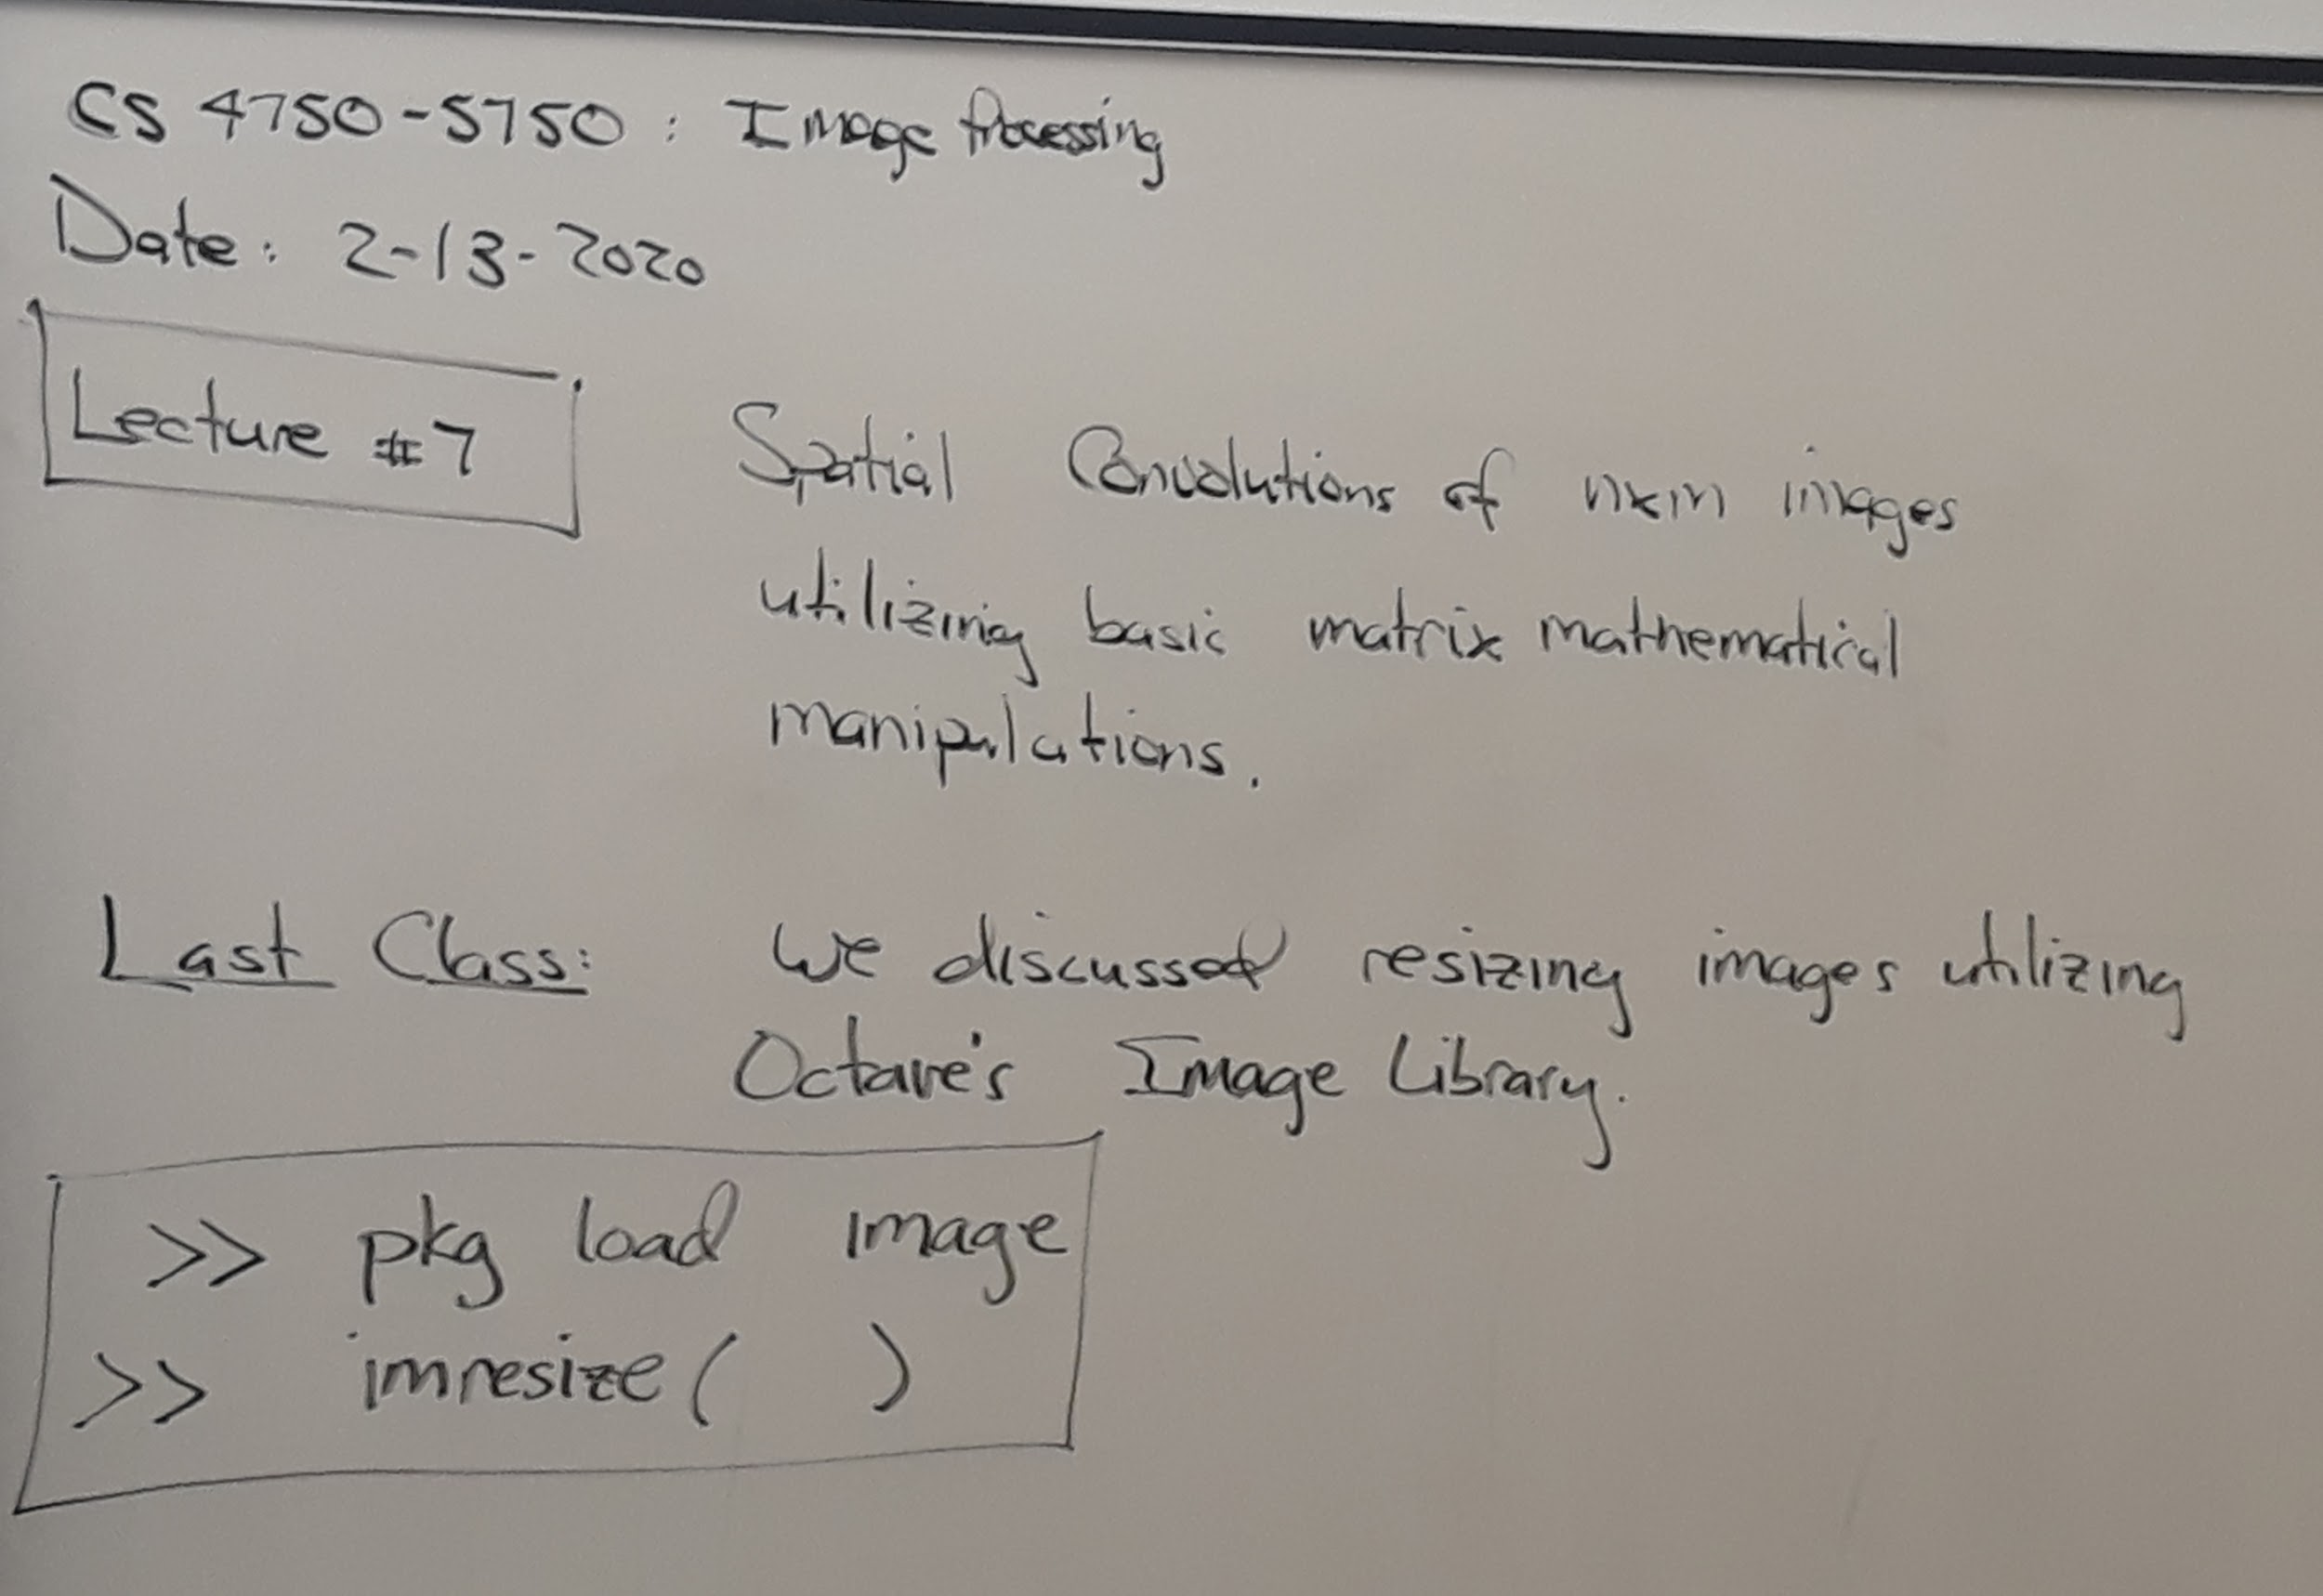 CS 4750-5750 : Image Processing
Date: 2-13-2020
Lecture #7
Spatial Convolutions of nxm images
utilizing basic matrix mathematical
manipulations.
Last Class: We discussed resizing images utilizing
Octave's Image Library.
>> pkg load image
>> imresize( )